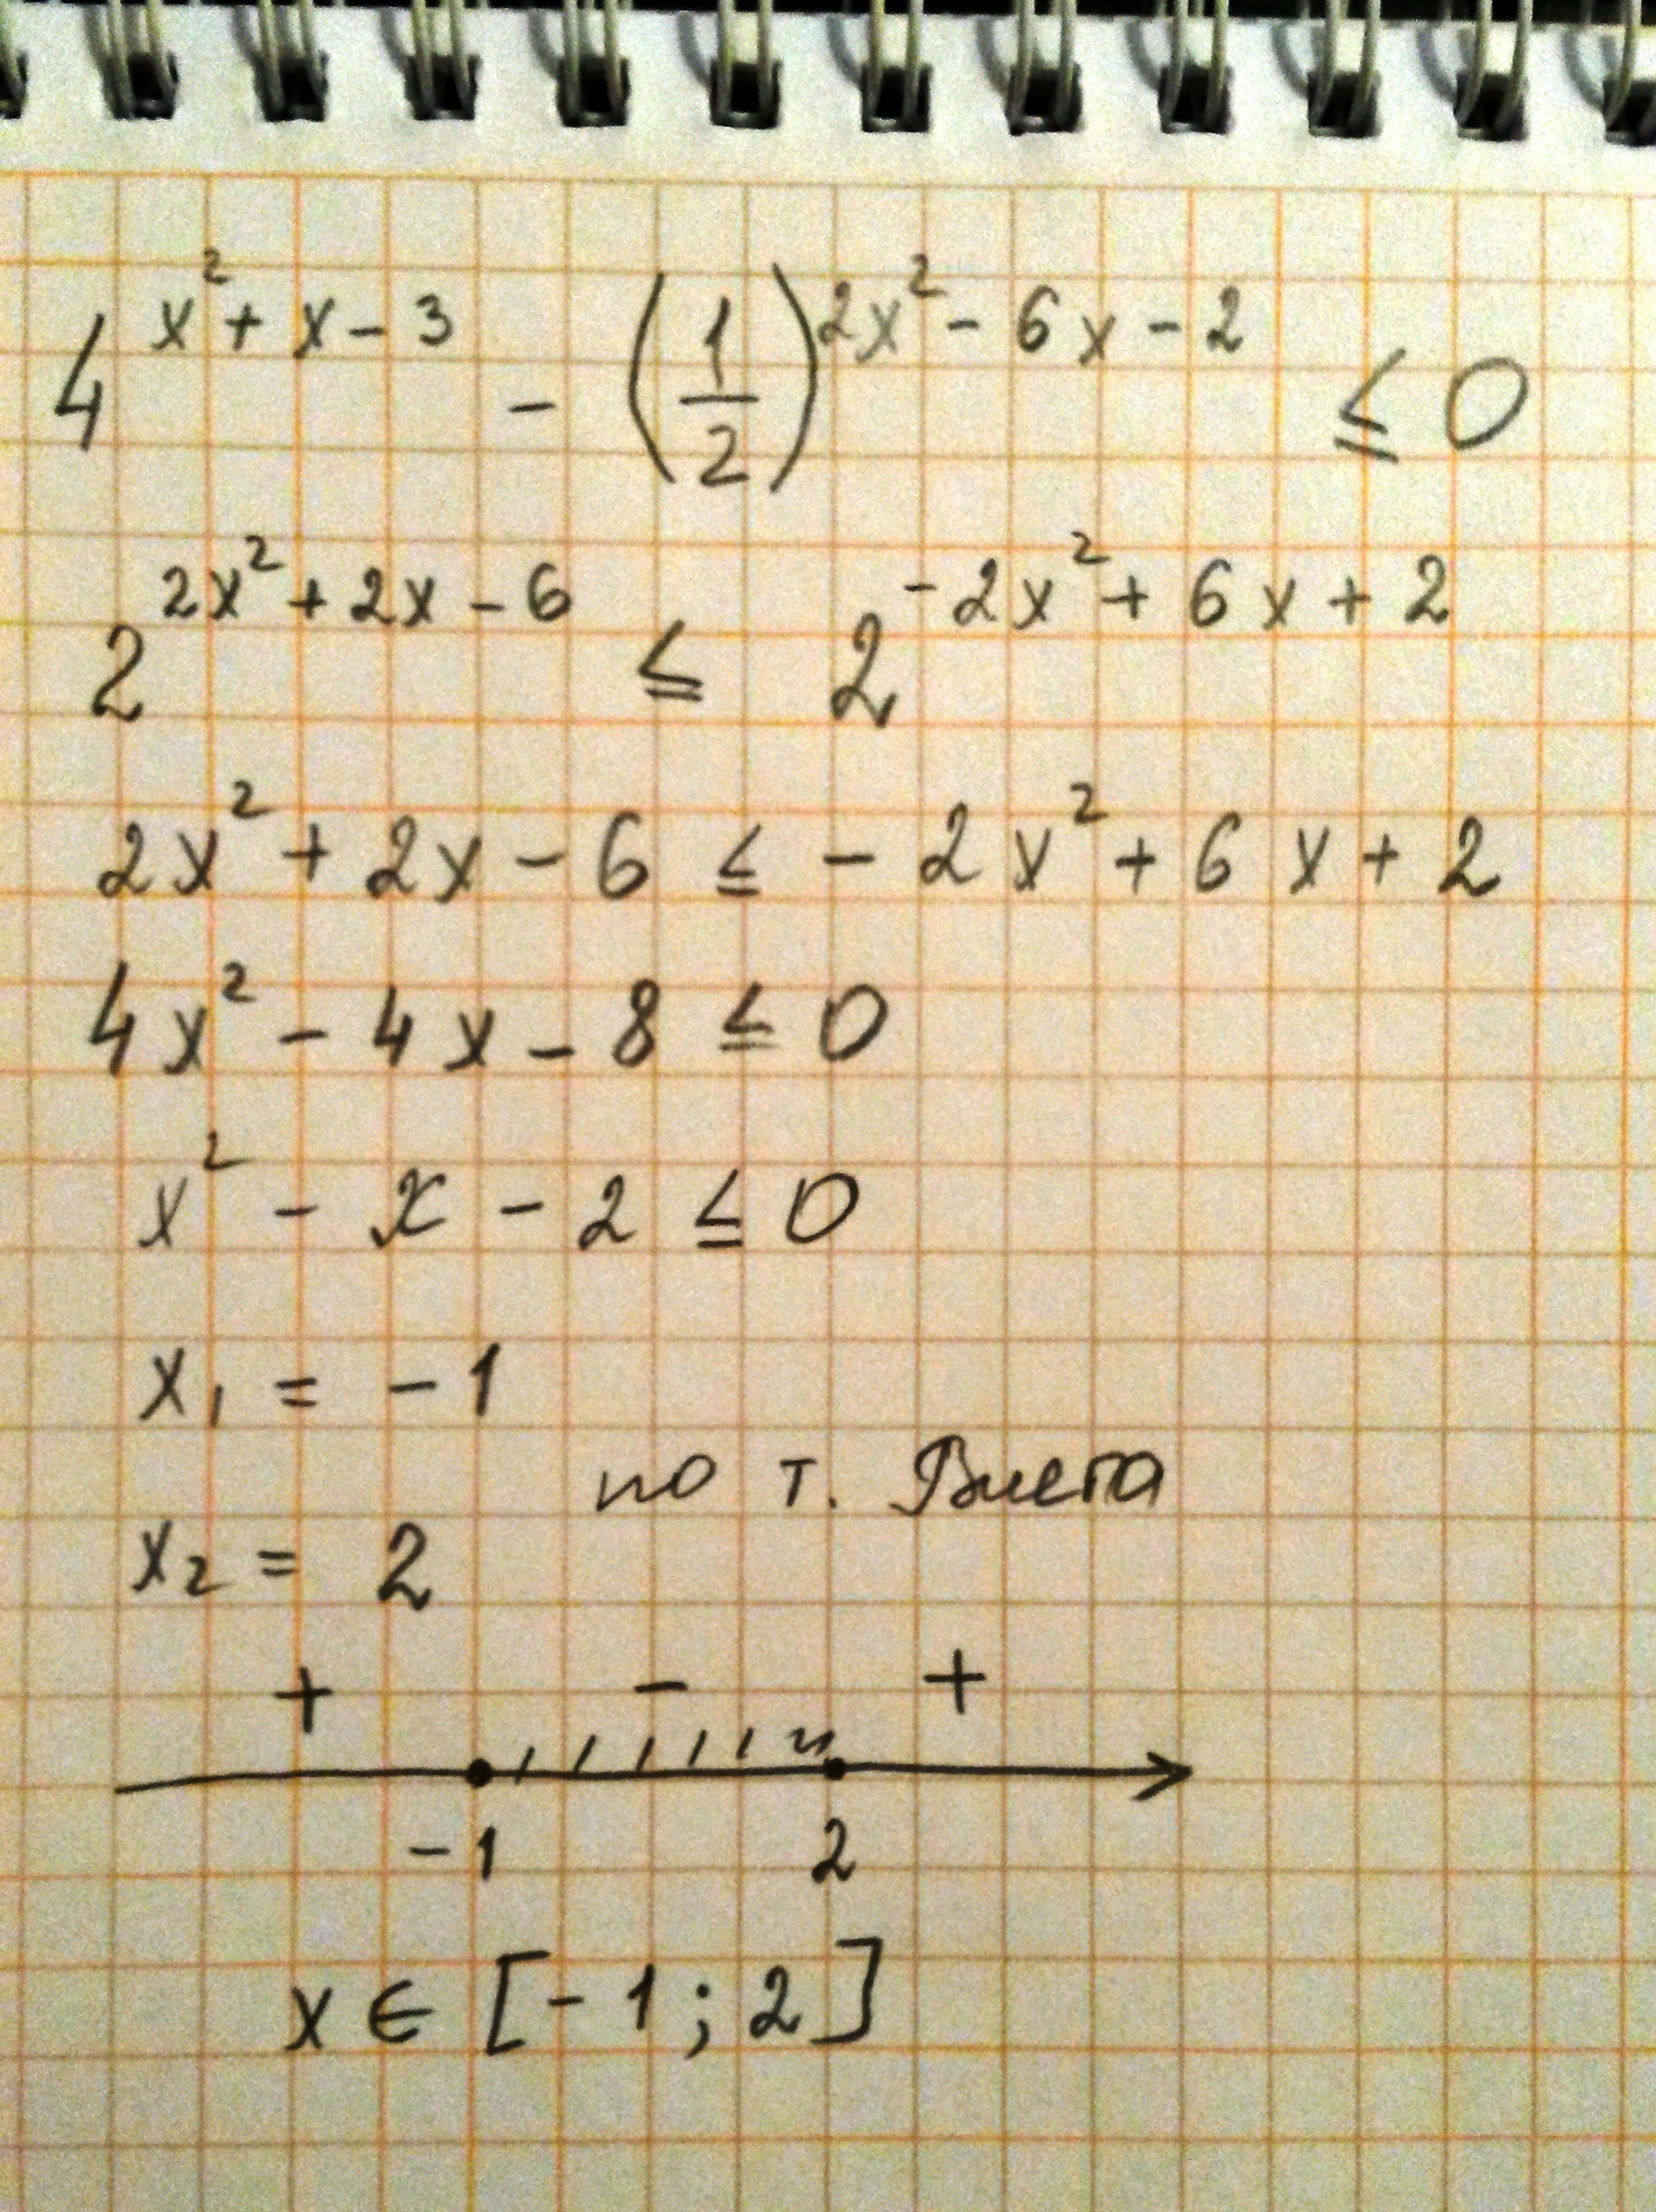 4^{x²+x-3} - (1/2)^{2x²-6x-2} ≤ 0
2^{2x²+2x-6} ≤ 2^{-2x²+6x+2}
2x² + 2x - 6 ≤ - 2x² + 6x + 2
4x² - 4x - 8 ≤ 0
x² - x - 2 ≤ 0
x₁ = -1
по т. Виета
x₂ = 2
+ - +
-1 2
x ∈ [-1; 2]